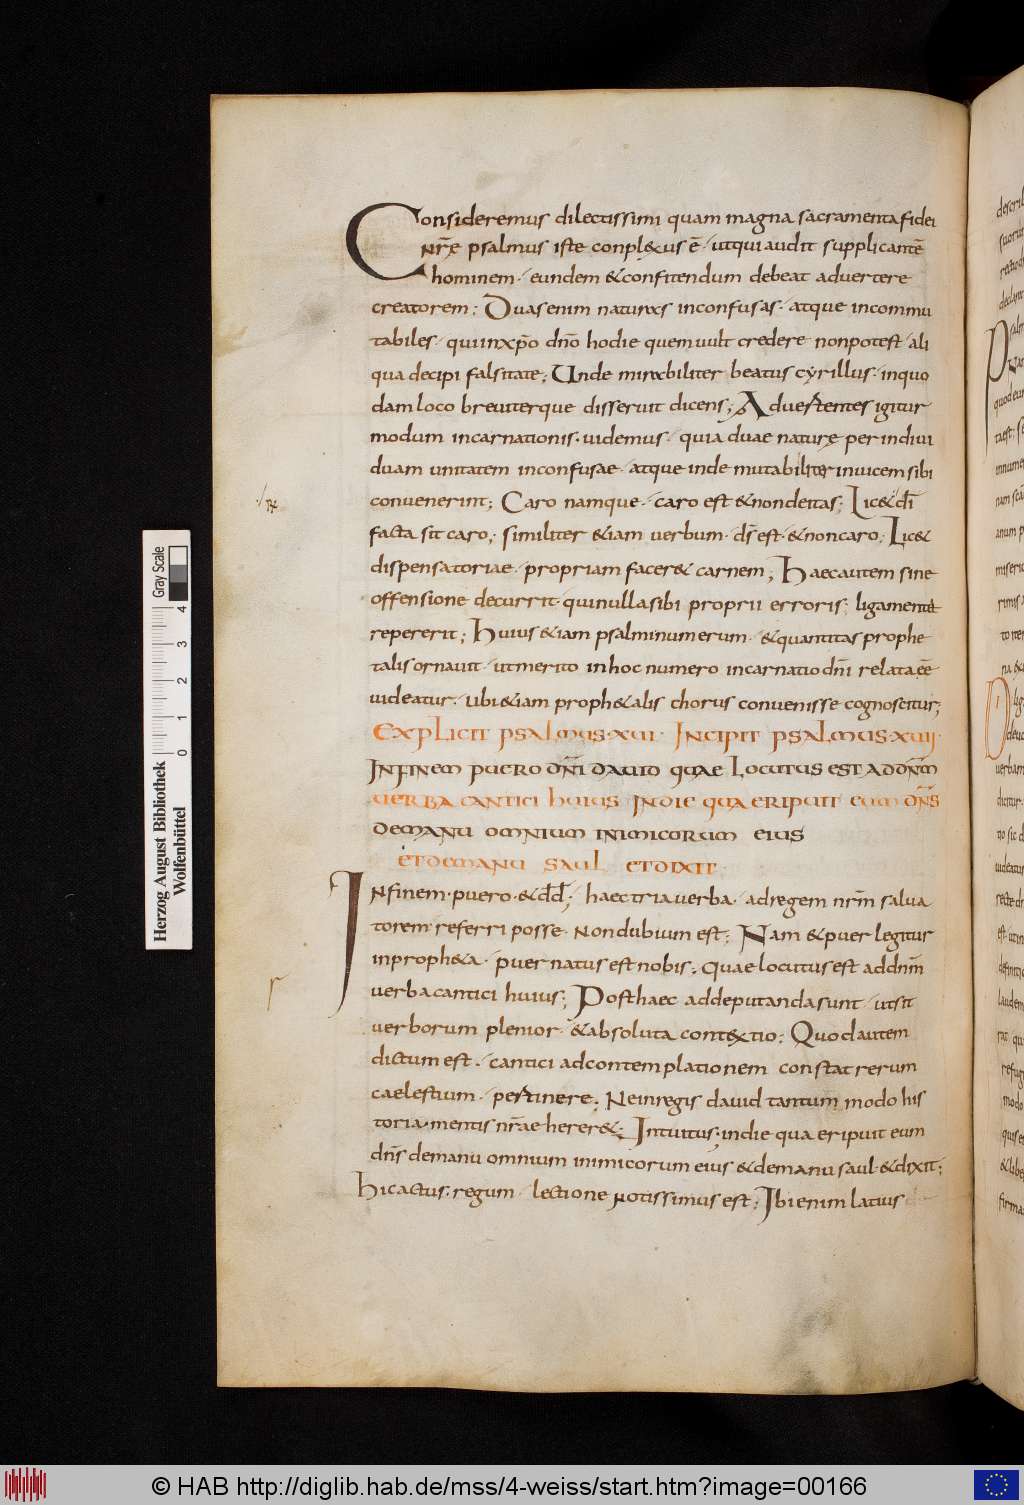 Consideremus dilectissimi quam magna sacramenta fidei
nrẽ psalmus iste conpl&xus ẽ · ut qui audit supplicantẽ
hominem · eundem & confitendum debeat advertere
creatorem ; Duas enim naturas inconfusas · atque incommu
tabiles · qui in xp̃o dño hodie quem vult credere non potest · ali
qua decipi falsitate ; Unde mirabiliter beatus cyrillus · in quo
dam loco breviterque disseruit dicens ; Advertentes igitur
modum incarnationis · videmus · quia duae naturę per indivi
duam unitatem inconfusae · atque inde mutabiliter invicem sibi
convenerint ; Caro namque · caro est & non deitas ; Lic& dĩ
facta sit caro ; similiter &iam verbum · ds̃ est · & non caro ; Lic&
dispensatoriae · propriam facer& carnem ; Haec autem sine
offensione decurrit · qui nulla sibi proprii erroris ; ligamenta
repererit ; Huius &iam psalmi numerum · & quantitas prophe
talis ornavit · ut merito in hoc numero incarnatio dñi relata eẽ
videatur · ubi &iam proph&alis chorus convenisse cognoscitur ;
EXPLICIT PSALMUS · XVI · INCIPIT PSALMUS · XVII ·
IN FINEM PUERO DÑI DAVID QUAE LOCUTUS EST AD DÑM
VERBA CANTICI HUIUS IN DIE QUA ERIPUIT EUM DÑS
DE MANU OMNIUM INIMICORUM EIUS
ET DE MANU SAUL ET DIXIT ·
In finem · puero · & dd̃ ; haec tria verba · ad regem nr̃m salva
torem referri posse · non dubium est ; Nam & puer legitur
in proph&a · puer natus est nobis ; quae locutus est ad dñm
verba cantici huius ; Post haec ad deputanda sunt · ut sit
verborum plenior · & absoluta cont&xtio ; Quod autem
dictum est · cantici ad contemplationem constat rerum
caelestium · pertinere ; Ne in regis david tantum modo his
toria · mentis nr̃ae herer& ; Intuitus · in die qua eripuit eum
dñs de manu omnium inimicorum eius & de manu saul · & dixit ;
Hic actus · regum · lectione notissimus est ; Ibi enim latius
Herzog August Bibliothek
Wolfenbüttel
0 1 2 3 4
Gray Scale
© HAB http://diglib.hab.de/mss/4-weiss/start.htm?image=00166